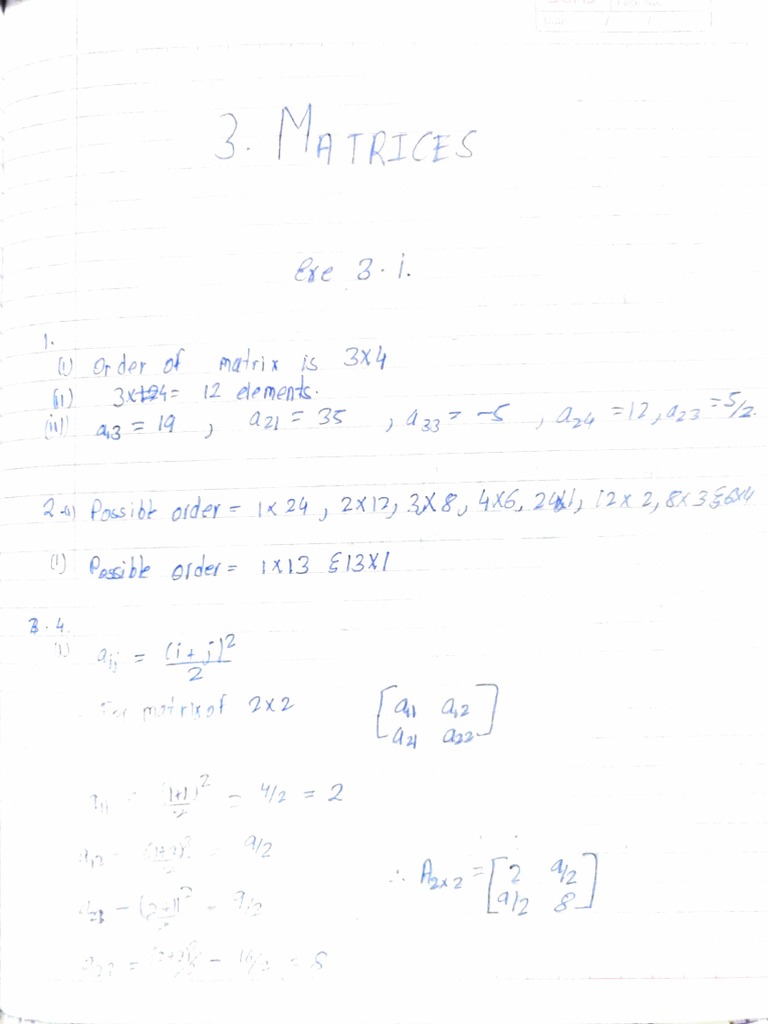 3. MATRICES
Exe 3.1.
1.
(i) Order of matrix is 3×4
(ii) 3×4 = 12 elements.
(iii) a13 = 19 , a21 = 35 , a33 = -5 , a24 = 12, a23 = 5/2.
2. Possible order = 1×24, 2×12, 3×8, 4×6, 24×1, 12×2, 8×3 & 6×4
(i) Possible order = 1×13 & 13×1
3. 4.
(i) aij = (i+j)²/2
For matrix of 2×2 [a11 a12
a21 a22]
a11 = (1+1)²/2 = 4/2 = 2
a12 = (1+2)²/2 = 9/2
∴ A2×2 = [2 9/2
9/2 8]
(2+1)²/2 = 9/2
a22 = (2+2)²/2 = 16/2 = 8